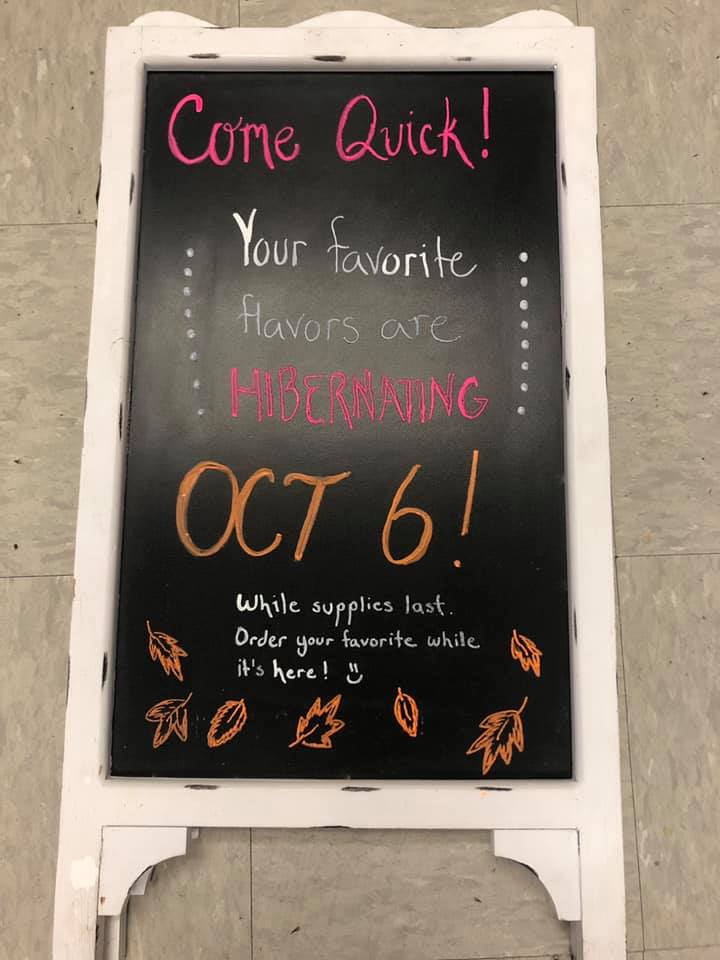 Come Quick!
Your favorite
flavors are
HIBERNATING
OCT 6!
While supplies last.
Order your favorite while
it's here!